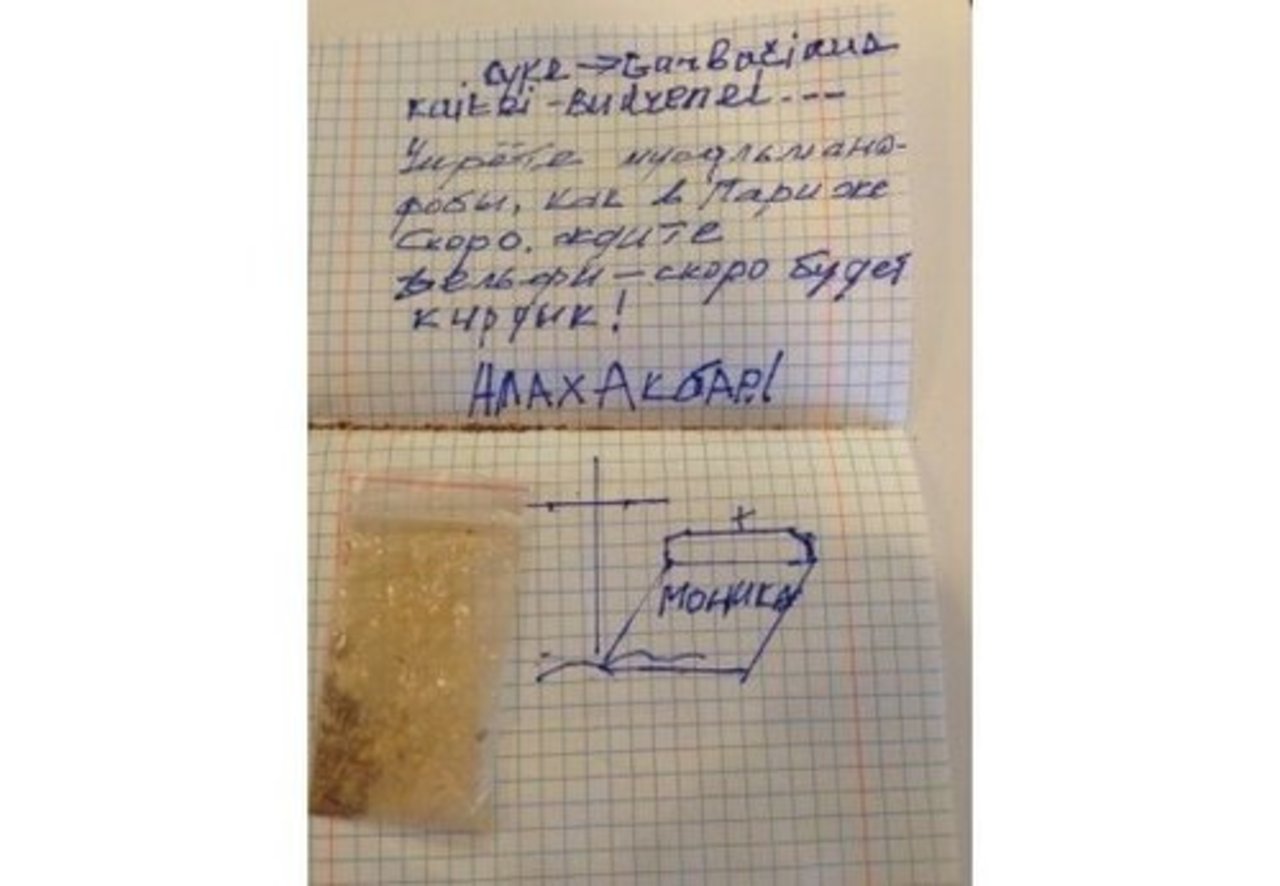 суке → Garbačiaus
kaltei - Budrenei...---
Умрёте мусульмано-
фобы, как в Париже
Скоро. ждите
Бельфи - скоро будет
кирдык!
АЛАХ АКБАР!
МОНИКА